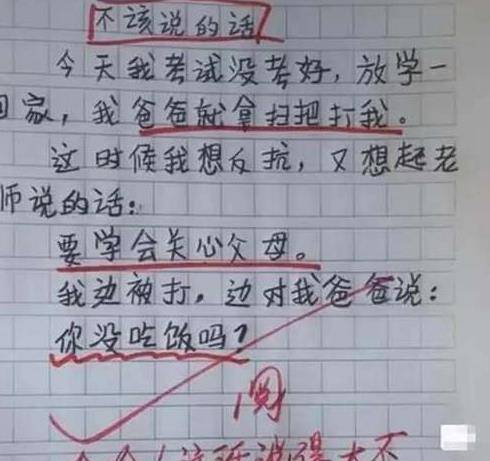 不该说的话
今天我考试没考好，放学一
回家，我爸爸就拿扫把打我。
这时候我想反抗，又想起老
师说的话：
要学会关心父母。
我边被打，边对我爸爸说：
你没吃饭吗？
阅